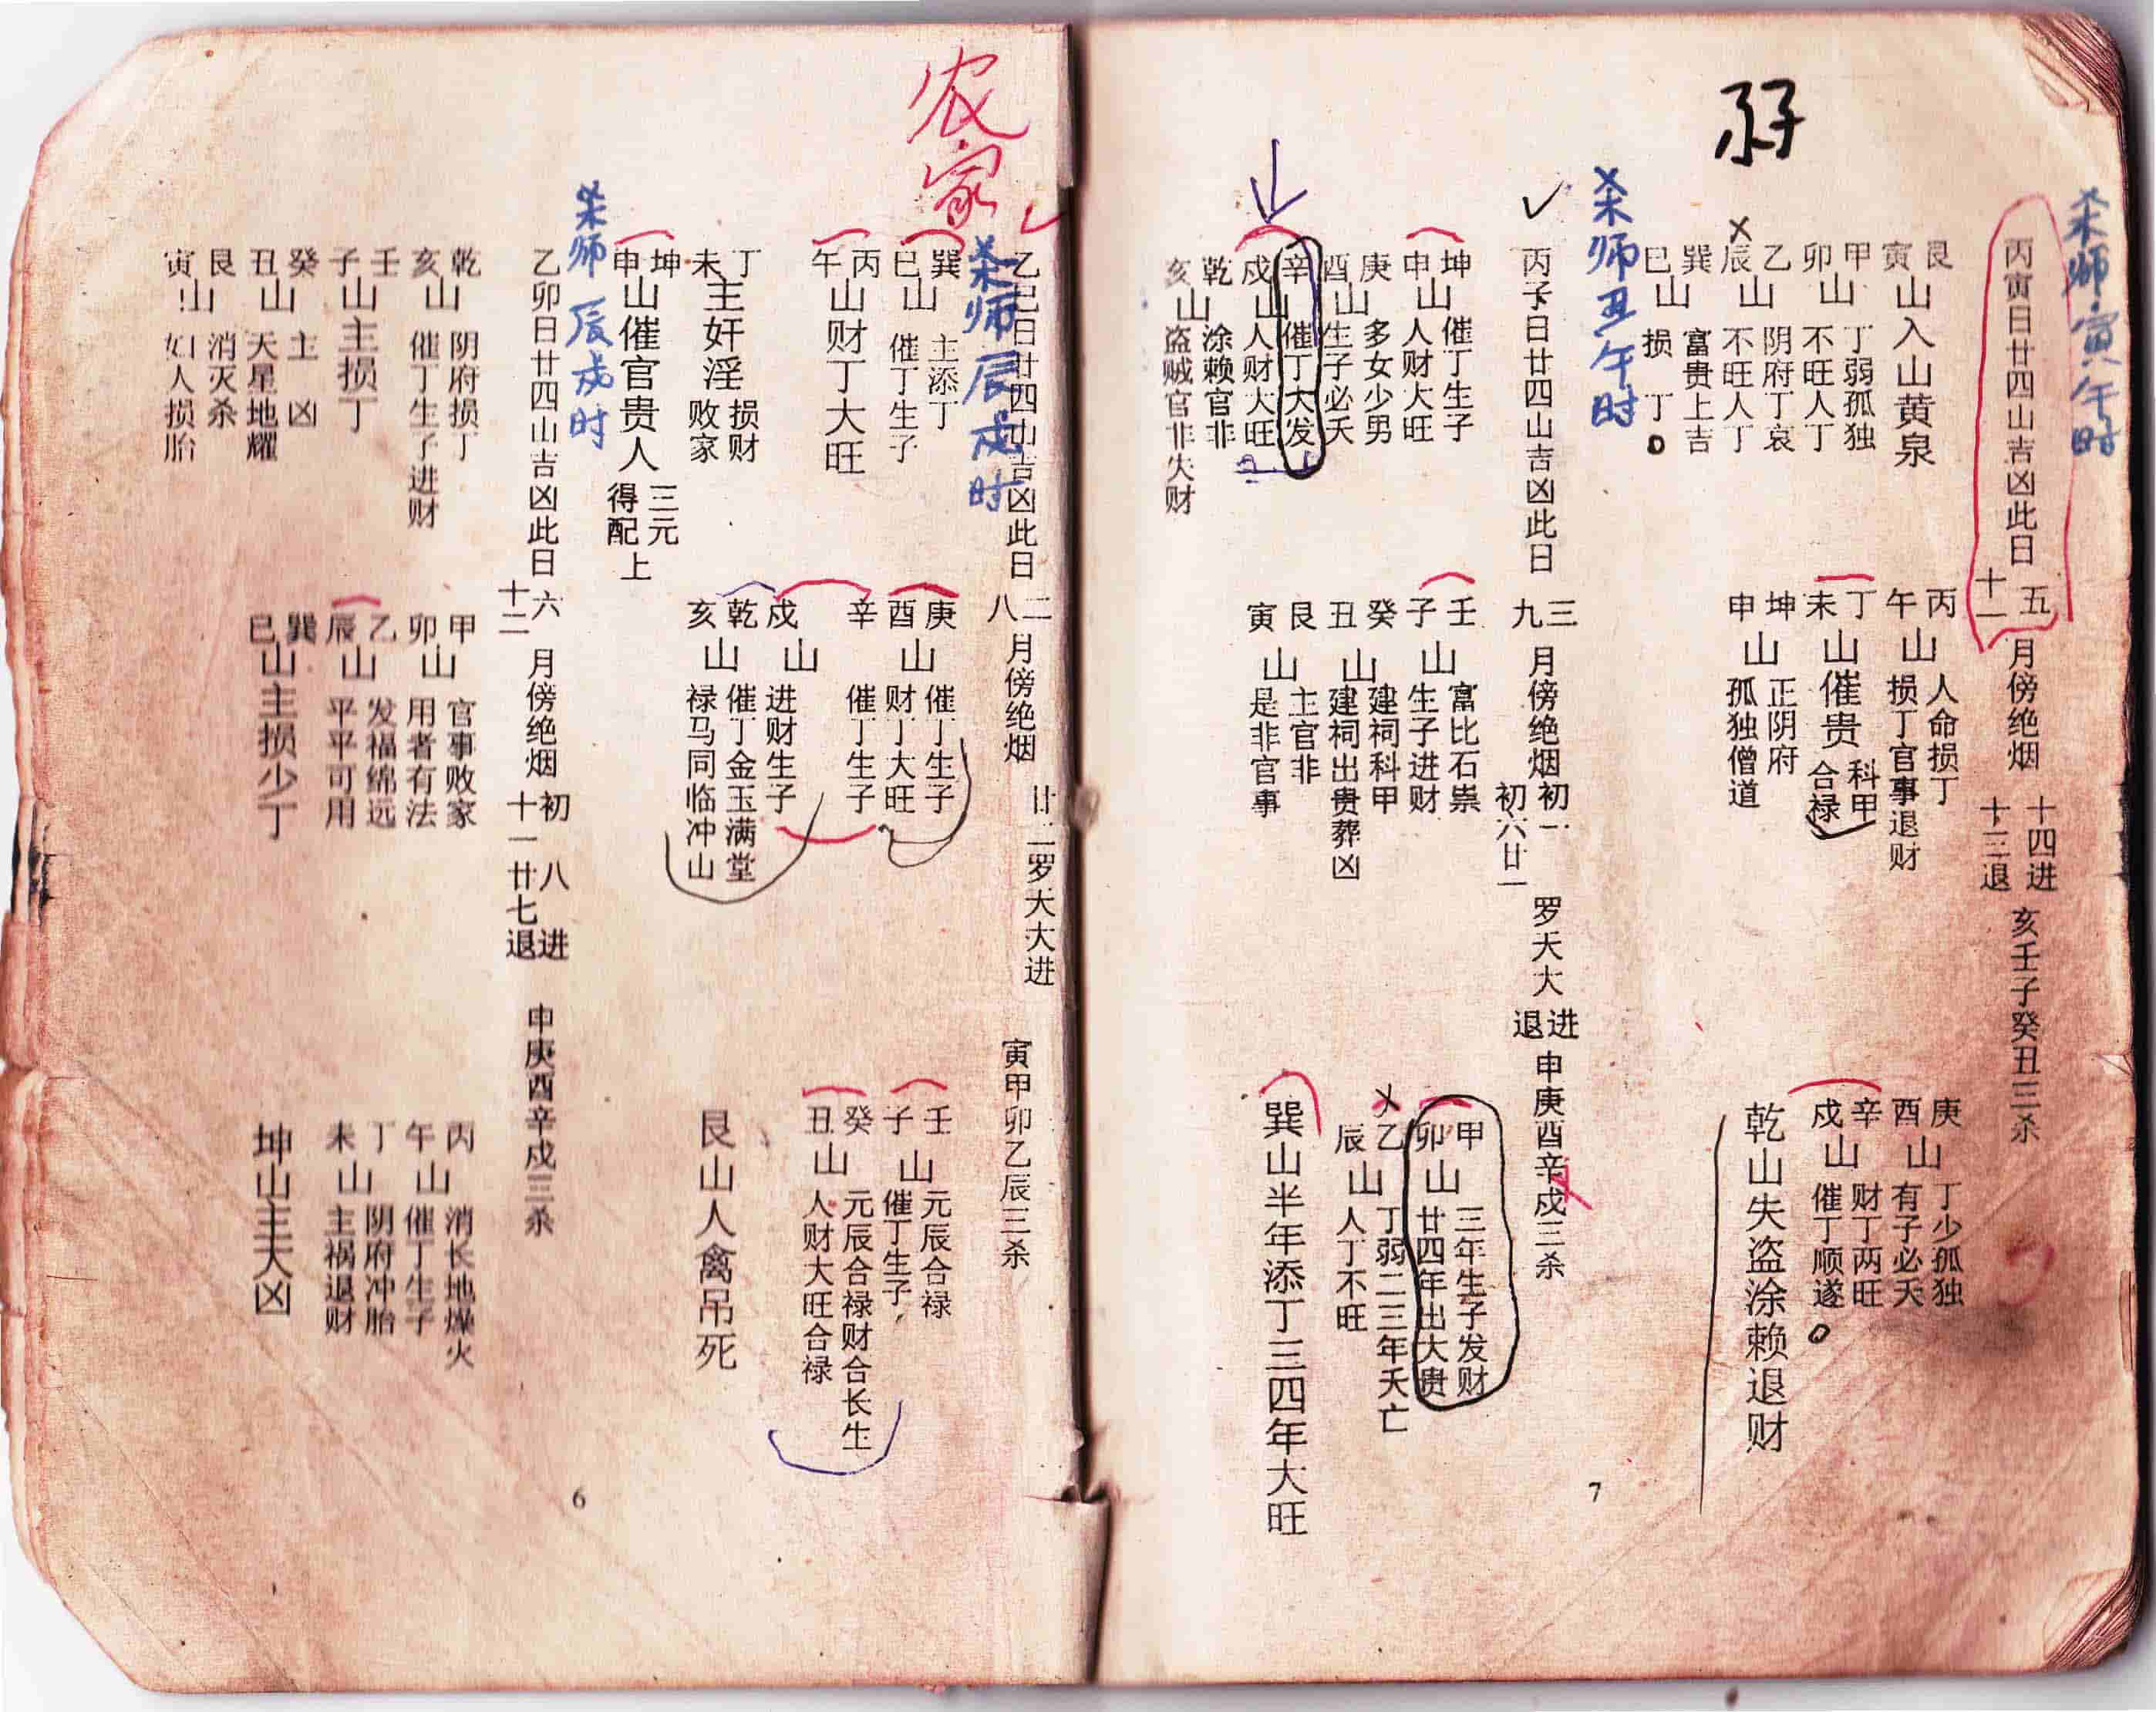 农家
杀师辰戌时
乙巳日廿四山吉凶此日
二八月傍绝烟
廿二罗大大进
寅甲卯乙辰三杀
巽巳山 主添丁 催丁生子
丙午山财丁大旺
丁未主奸淫 损财败家
坤申山催官贵人 三元得配上
庚酉山 催丁生子 财丁大旺
辛戌山 催丁生子 进财生子
乾亥山 催丁金玉满堂 禄马同临冲山
壬子山 元辰合禄 催丁生子
癸丑山 元辰合禄财合长生 人财大旺合禄
艮山人禽吊死
杀师辰戌时
乙卯日廿四山吉凶此日
六十二月傍绝烟
初八进
十一廿七退
申庚酉辛戌三杀
乾亥山 阴府损丁 催丁生子进财
壬子山主损丁
癸丑山 主凶 天星地耀
艮寅山 消灭杀 妇人损胎
甲卯山 官事败家 用者有法
乙辰山 发福绵远 平平可用
巽巳山主损少丁
丙午山 消长地燥火 催丁生子
丁未山 阴府冲胎 主祸退财
坤山主大凶
6
杀师寅午时
丙寅日廿四山吉凶此日
五十一月傍绝烟
十四进
十三退
亥壬子癸丑三杀
艮寅山入山黄泉
甲卯山 丁弱孤独 不旺人丁
乙辰山 阴府丁哀 不旺人丁
巽巳山 富贵上吉 损丁
丙午山 人命损丁 损丁官事退财
丁未山催贵 科甲合禄
坤申山 正阴府 孤独僧道
庚酉山 丁少孤独 有子必夭
辛戌山 财丁两旺 催丁顺遂
乾山失盗涂赖退财
杀师丑午时
丙子日廿四山吉凶此日
三九月傍绝烟
初一初六廿一
罗天大进退
申庚酉辛戌三杀
坤申山 催丁生子 人财大旺
庚酉山 多女少男 生子必夭
辛戌山 催丁大发 人财大旺
乾亥山 涂赖官非 盗贼官非失财
壬子山 富比石崇 生子进财
癸丑山 建祠科甲 建祠出贵葬凶
艮寅山 主官非 是非官事
甲卯山 三年生子发财 廿四年出大贵
乙辰山 丁弱二三年夭亡 人丁不旺
巽山半年添丁三四年大旺
7